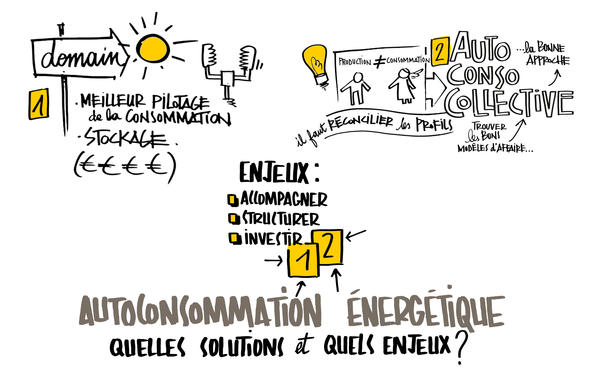 domain
1
• MEILLEUR PILOTAGE
de la CONSOMMATION
• STOCKAGE.
(€ € € €)
PRODUCTION ≠ CONSOMMATION
il faut RÉCONCILIER les PROFILS
2 AUTO
CONSO
COLLECTIVE
...la BONNE
APPROCHE
TROUVER
les BONS
MODÈLES d'AFFAIRE...
ENJEUX :
ACCOMPAGNER
STRUCTURER
INVESTIR
1 2
AUTOCONSOMMATION ÉNERGÉTIQUE
QUELLES SOLUTIONS et QUELS ENJEUX ?